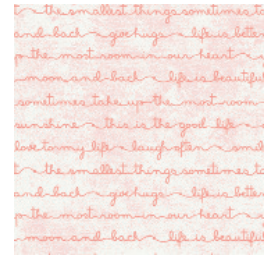 the smallest things sometimes t
and back give hugs life is bette
the most room in our heart
moon and back life is beautiful
sometimes take up the most room
sunshine this is the good life
love to my life laugh often smil
the smallest things sometimes ta
and back give hugs life is bette
the most room in our heart
moon and back life is beautiful